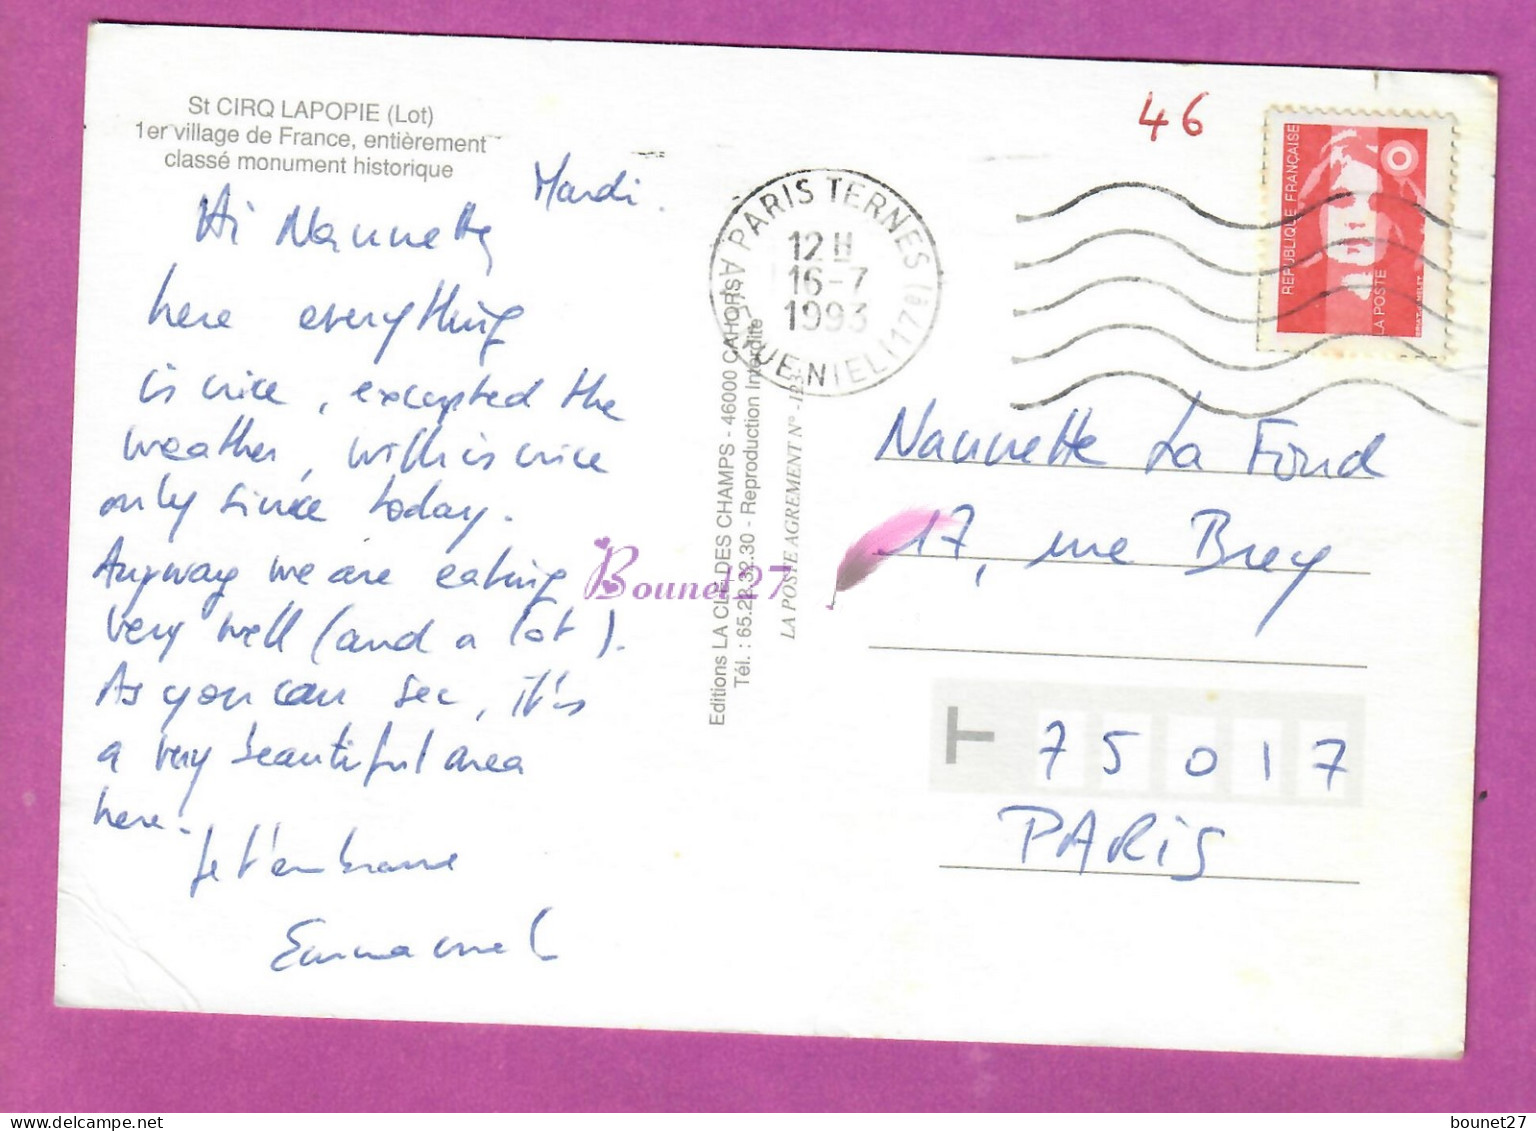 St CIRQ LAPOPIE (Lot)
1er village de France, entièrement
classé monument historique
Mardi.
Hi Nannette
here everything
is nice, excepted the
weather, wich is nice
only since today.
Anyway we are eating
very well (and a lot).
As you can see, it's
a very beautiful area
here.
Je t'embrasse
Emmanuel
Editions LA CLE DES CHAMPS - 46000 CAHORS
Tél. : 65.22.32.30 - Reproduction Interdite
LA POSTE AGREMENT N° -123
PARIS TERNES (17e)
12 H
16-7
1993
46
REPUBLIQUE FRANÇAISE
LA POSTE
Nannette La Fond
17, rue Brey
T 75017
PARIS
Bounet27
delcampe.net
bounet27